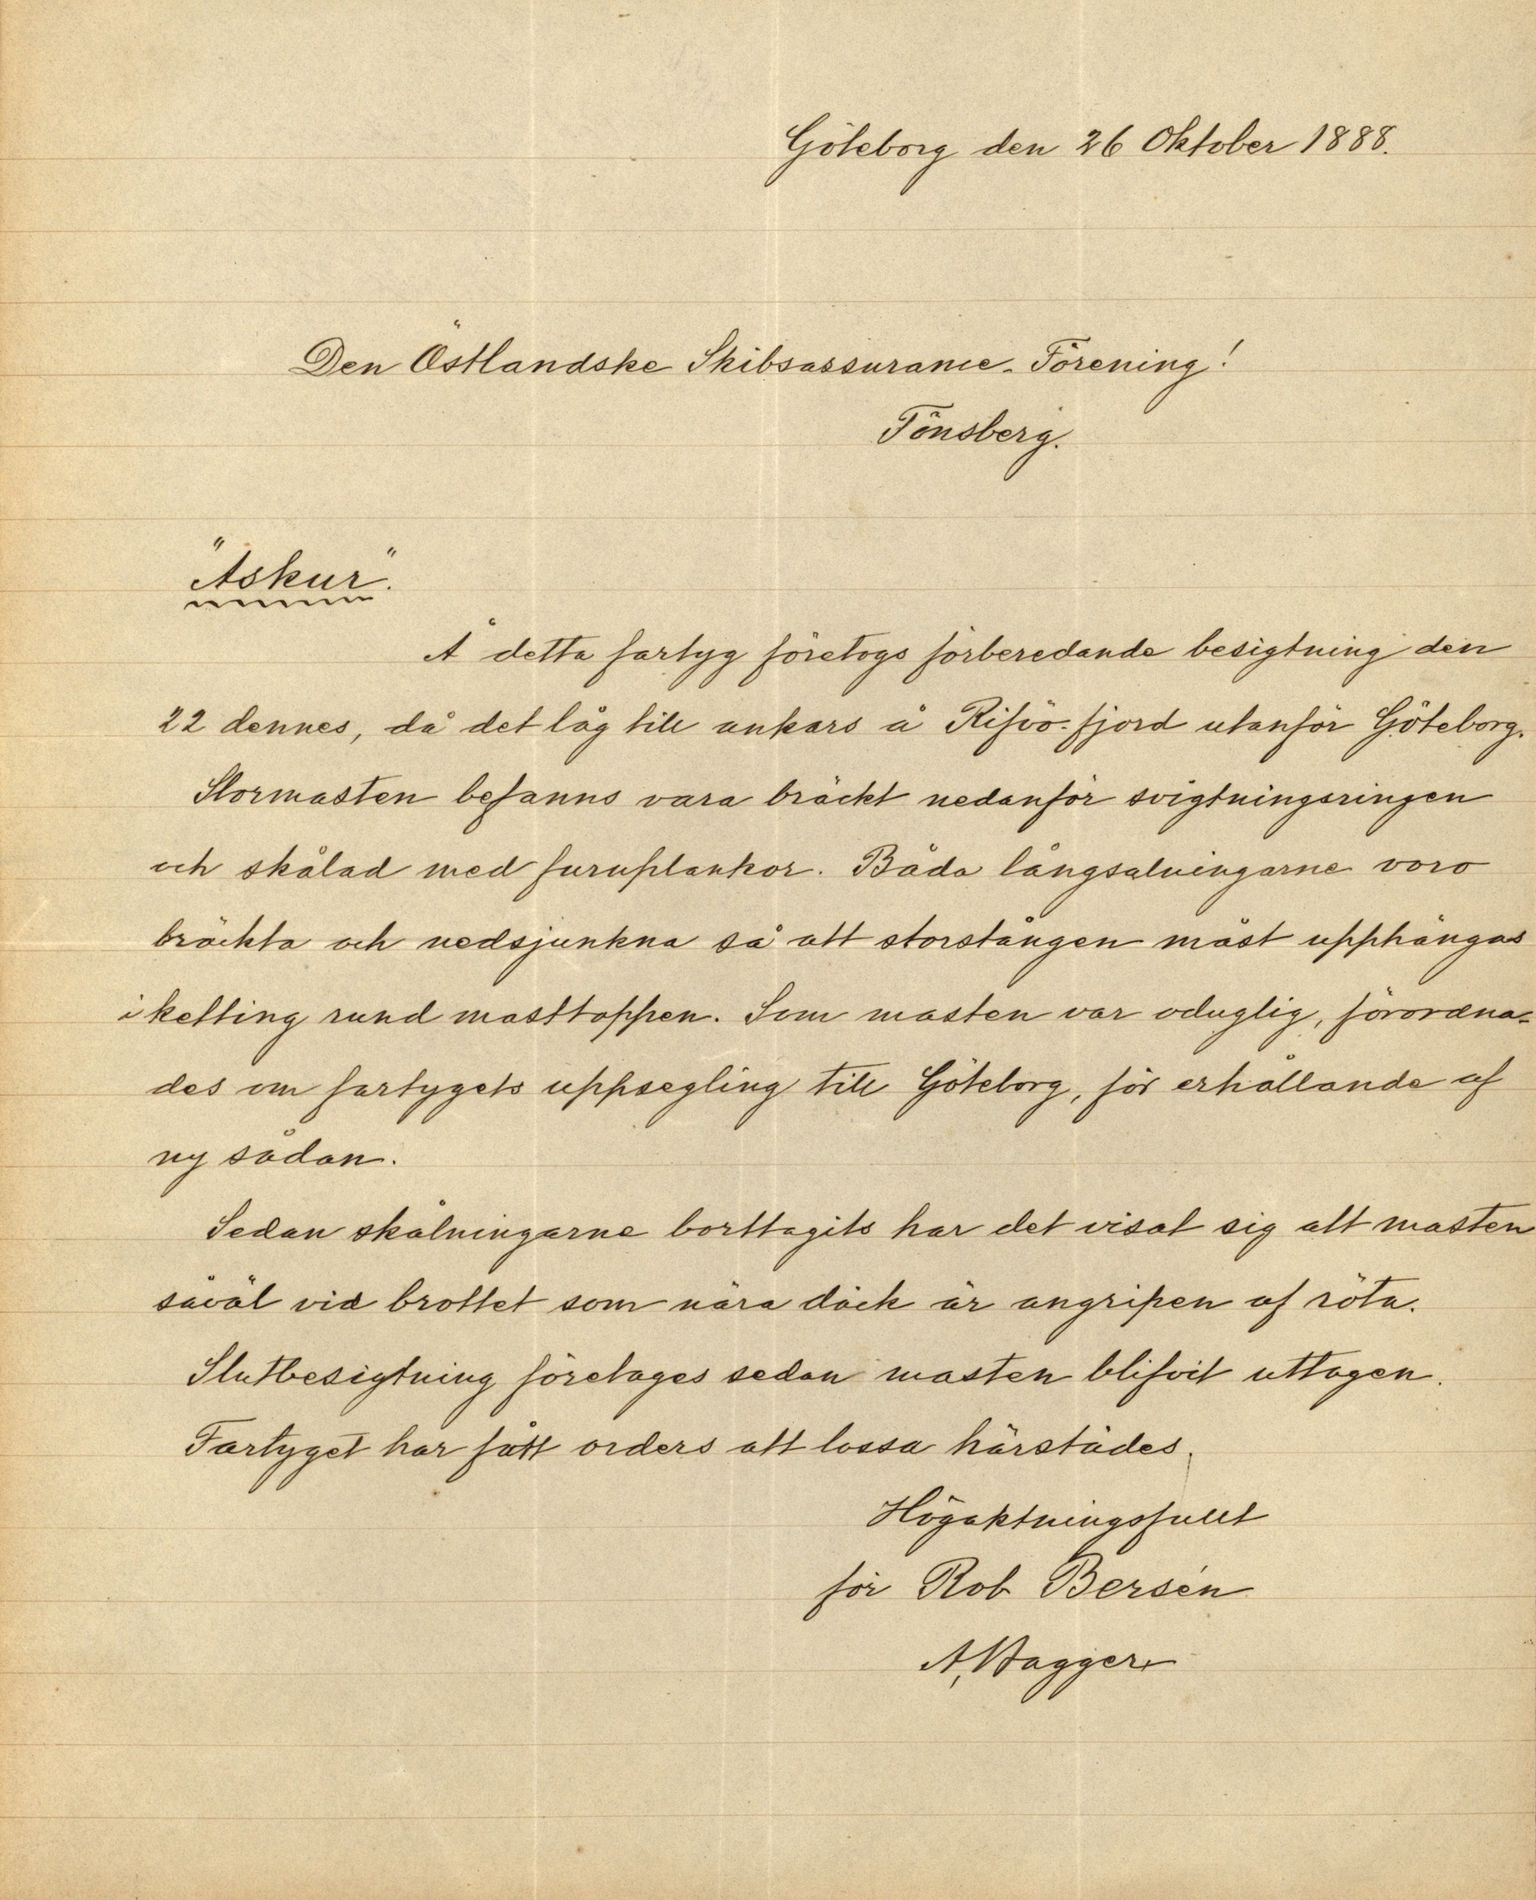 Göteborg den 26 Oktober 1888.
Den Östlandske Skibsassurance-Förening!
Tönsberg.
"Askur".
Å detta fartyg företogs förberedande besigtning den
22 dennes, då det låg till ankars å Rifvö-fjord utanför Göteborg.
Stormasten befanns vara bräckt nedanför svigtningsringen
och skålad med furuplankor. Båda långsalningarne voro
bräckta och nedsjunkna så att storstången måst upphängas
i ketting rund masttoppen. Som masten var oduglig, förordna-
des om fartygets uppsegling till Göteborg, för erhållande af
ny sådan.
Sedan skålningarne borttagits har det visat sig att masten
såväl vid brottet som nära däck är angripen af röta.
Slutbesigtning företages sedan masten blifvit uttagen.
Fartyget har fått orders att lossa härstädes.
Högaktningsfullt
för Rob Bersén
A.